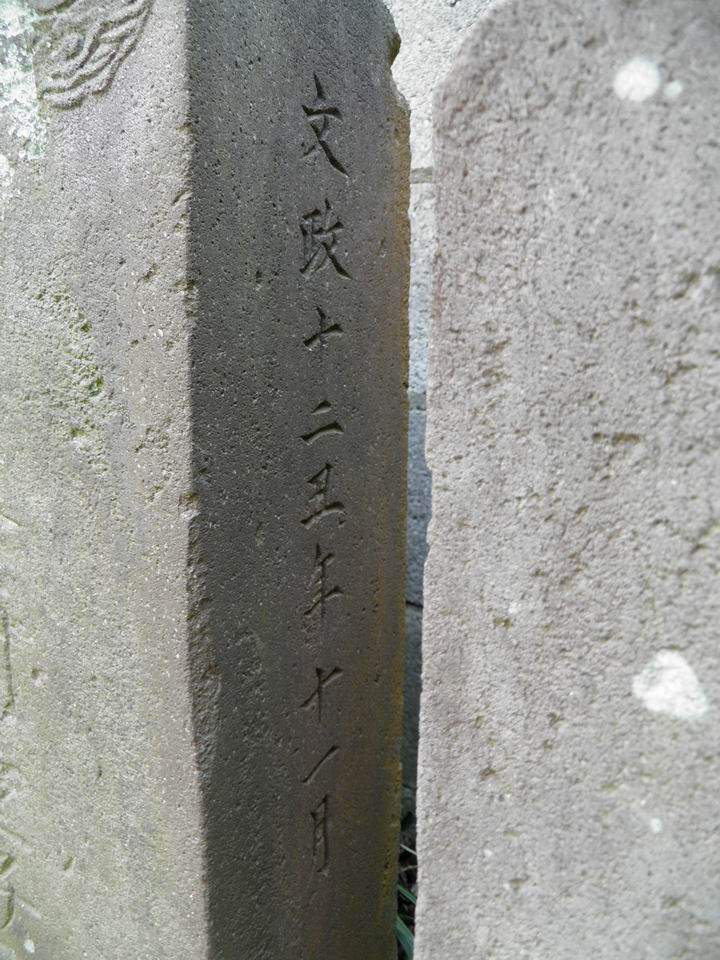 文政十二丑年十一月